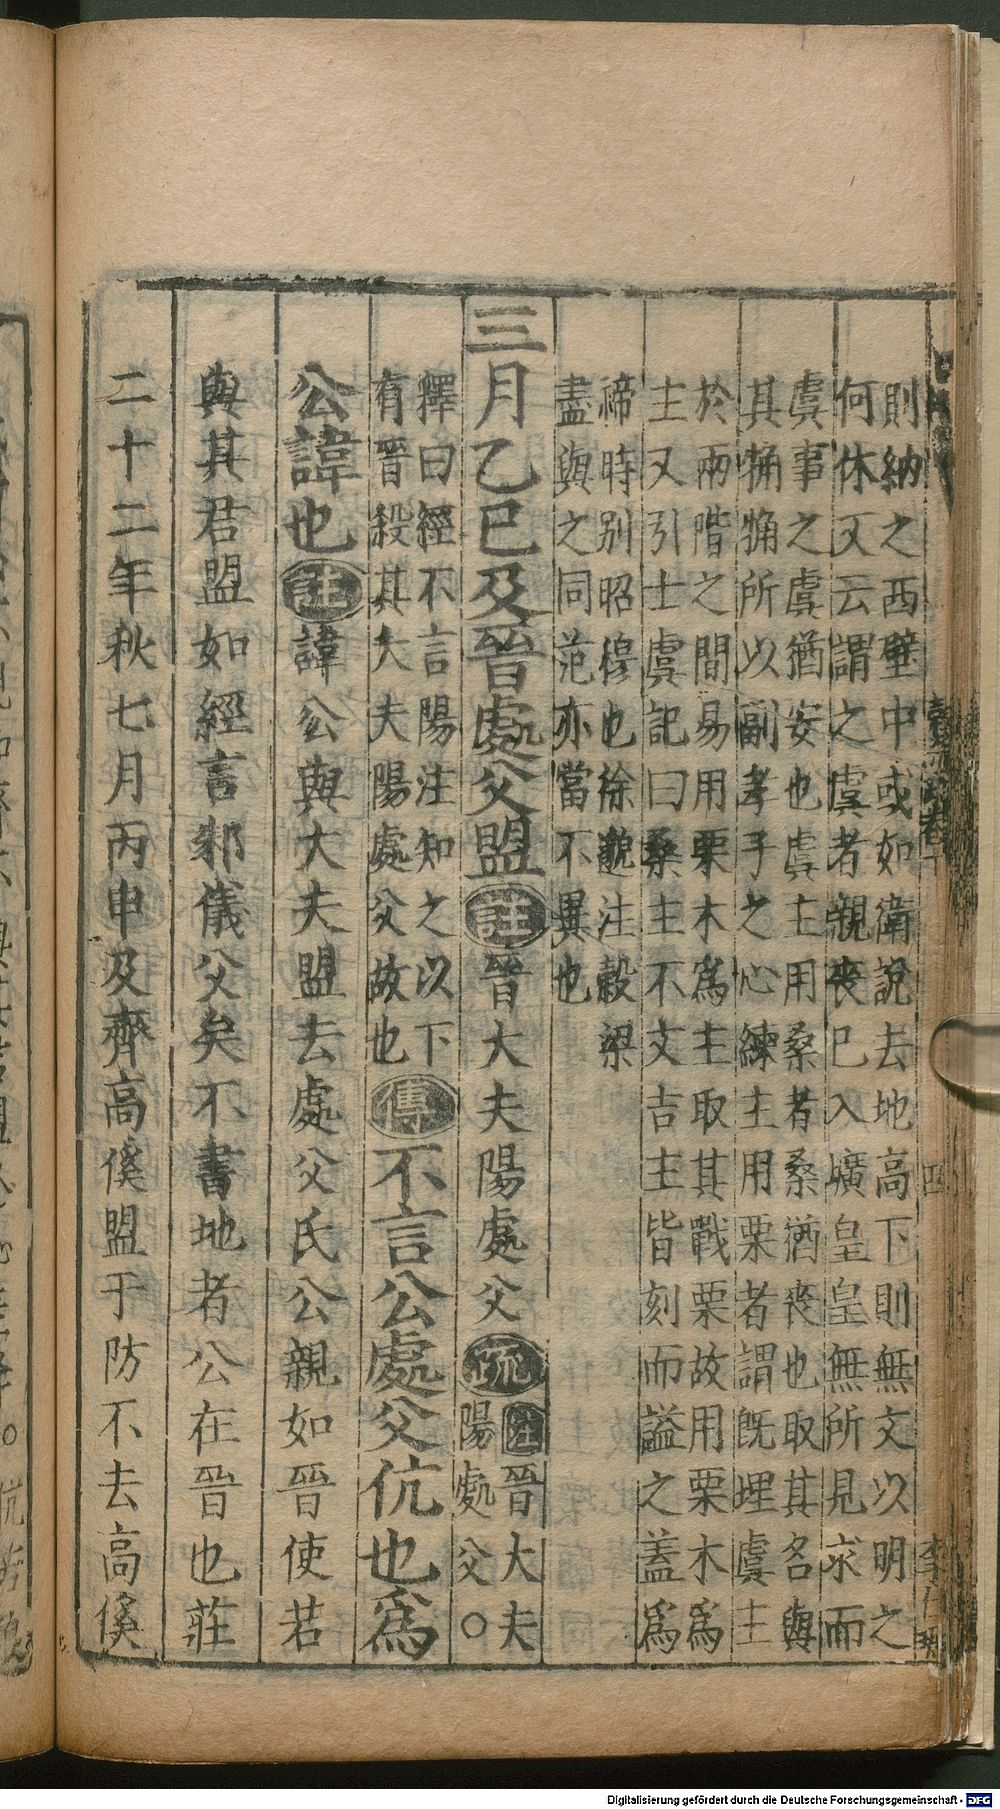 則納之西壁中或如衛說去地高下則無文以明之
何休又云謂之虞者親喪已入壙皇皇無所見求而
虞事之虞猶安也虞主用桑者桑猶喪也取其名與
其桷桷所以副孝子之心練主用栗者謂既埋虞主
於兩階之間易用栗木為主取其戰栗故用栗木為
主又引士虞記曰桑主不文吉主皆刻而謚之蓋為
禘時別昭穆也徐邈注穀梁
盡與之同范亦當不異也
三月乙巳及晉處父盟註晉大夫陽處父疏注晉大夫
陽處父○
釋曰經不言陽注知之以下
有晉殺其大夫陽處父故也傳不言公處父伉也為
公諱也註諱公與大夫盟去處父氏公親如晉使若
與其君盟如經言邾儀父矣不書地者公在晉也莊
二十二年秋七月丙申及齊高傒盟于防不去高傒
Digitalisierung gefördert durch die Deutsche Forschungsgemeinschaft - DFG